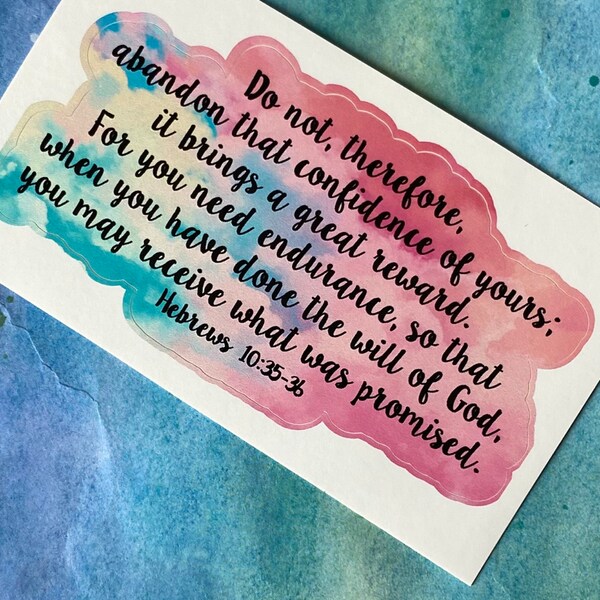 Do not, therefore,
abandon that confidence of yours;
it brings a great reward.
For you need endurance, so that
when you have done the will of God,
you may receive what was promised.
Hebrews 10:35-36